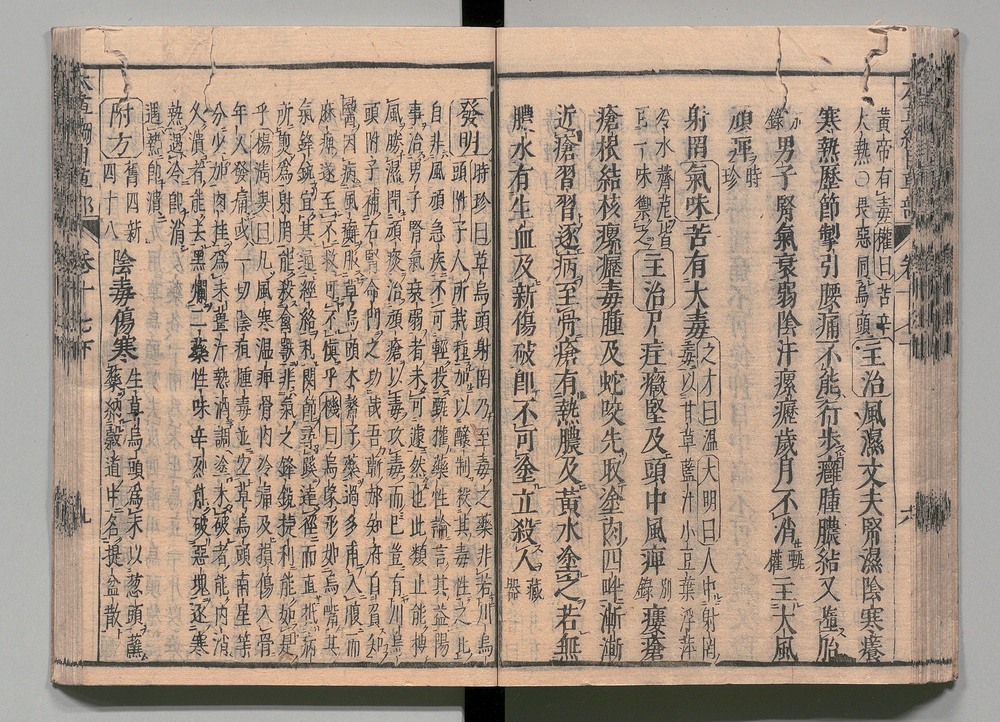 黃帝有毒權曰苦辛
大熱○畏惡同烏頭
主治風濕丈夫腎濕陰寒癢
寒熱歷節掣引腰痛不能行步癰腫膿結又墮胎
別錄
男子腎氣衰弱陰汗瘰癧歲月不消
甄權
主大風
頑痺
時珍
射罔氣味苦有大毒
之才曰溫大明曰人中射罔
毒以甘草藍汁小豆葉浮萍
冷水薺苨皆
可一味禦之
主治尸疰癥堅及頭中風痺
別錄
瘻瘡
瘡根結核瘰癧毒腫及蛇咬先取塗肉四畔漸漸
近瘡習習逐病至骨瘡有熱膿及黃水塗之若無
膿水有生血及新傷破即不可塗立殺人
藏器
發明
時珍曰草烏頭射罔乃至毒之藥非若川烏
頭附子人所栽種加以釀制殺其毒性之比
自非風頑急疾不可輕投甄權藥性論言其益陽
事治男子腎氣衰弱者未可遽然也此類止能搜
風勝濕開頑痰治頑瘡以毒攻毒而已豈有川烏
頭附子補右腎命門之功哉吾蘄郝知府自負知
醫因病風癬服草烏頭木鱉子藥過多甫入腹而
麻痺遂至不救可不慎乎機曰烏喙形如烏嘴其
氣鋒銳宜其通經絡利關節尋蹊達徑而直抵病
所煎為射罔能殺禽獸非氣之鋒銳捷利能如是
乎楊清叟曰凡風寒溫痺骨內冷痛及損傷入骨
年久發痛或一切陰疽腫毒並宜草烏頭南星等
分少加肉桂為末薑汁熱酒調塗未破者能內消
久潰者能去黑爛二藥性味辛烈能破惡塊逐寒
熱遇冷即消
遇熱即潰
附方
舊四新
四十八
陰毒傷寒
生草烏頭為末以葱頭蘸
藥納穀道中名提盆散